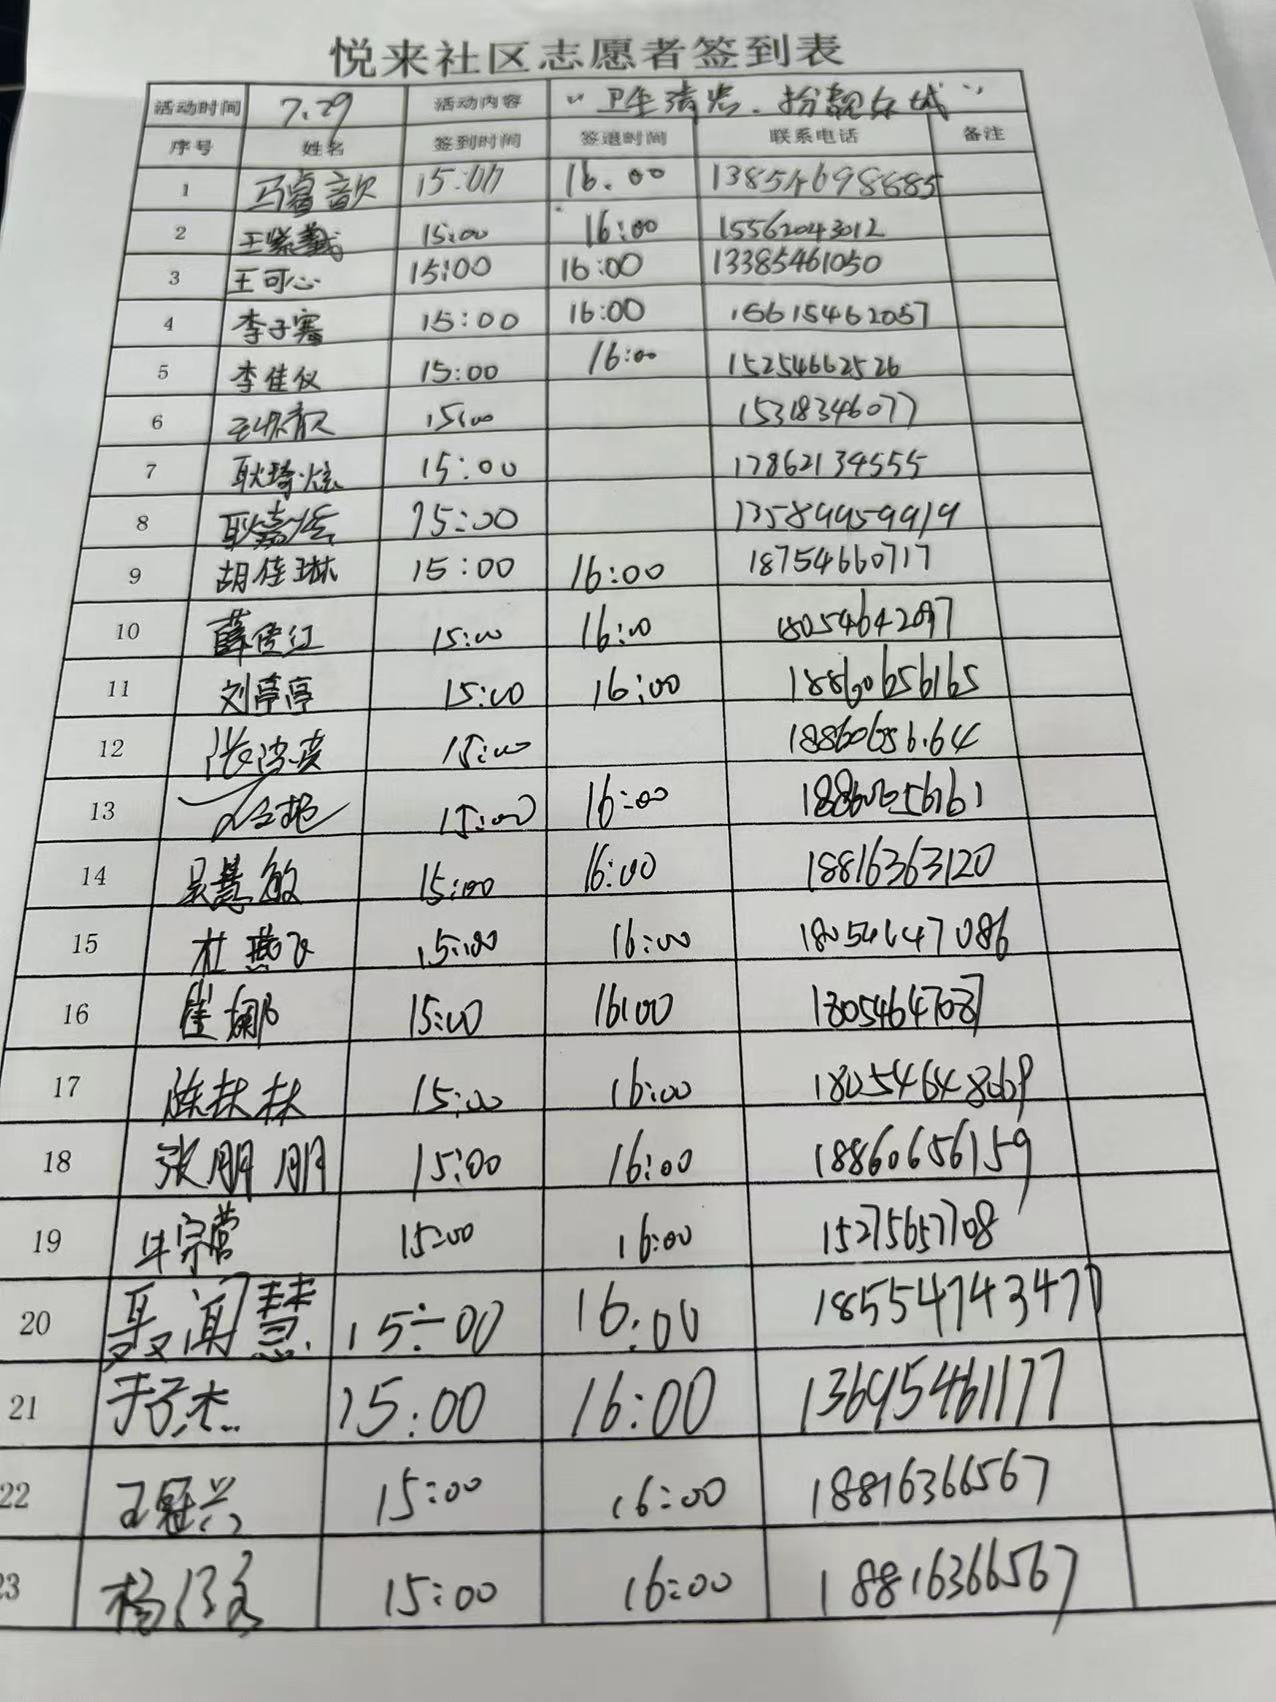 悦来社区志愿者签到表
活动时间 7.29 活动内容 “卫生清洁.扮靓东城”
序号 姓名 签到时间 签退时间 联系电话 备注
1 马睿歆 15:00 16.00 13854698885
2 15:00 16:00 15562043012
3 王可心 15:00 16:00 13385461050
4 李子骞 15:00 16:00 15615462057
5 李佳仪 15:00 16:00 15254662526
6 15:00 15318346077
7 耿琦炫 15:00 17862134555
8 15:00 13589959919
9 胡佳琳 15:00 16:00 18754660717
10 15:00 16:00 18054642097
11 刘亭亭 15:00 16:00 18860656165
12 15:00 18860656164
13 15:00 16:00 18860656161
14 吴慧敏 15:00 16:00 18816363120
15 杜燕飞 15:00 16:00 18054647086
16 崔娜 15:00 16:00 18054647087
17 陈林林 15:00 16:00 18054648069
18 张朋朋 15:00 16:00 18860656159
19 牛宗营 15:00 16:00 15275657708
20 聂闻慧 15:00 16:00 18554743477
21 于子杰 15:00 16:00 13695461177
22 王冠兴 15:00 16:00 18816366567
23 15:00 16:00 18816366567